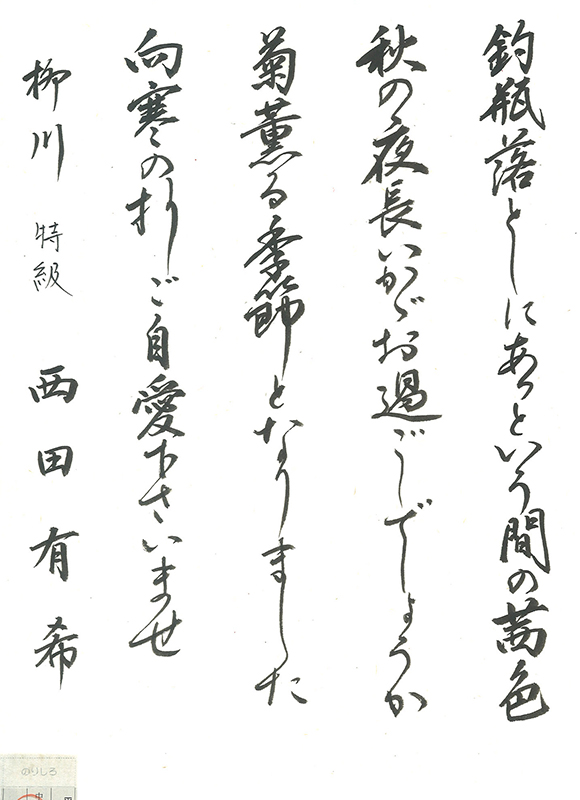 釣瓶落としにあっという間の茜色
秋の夜長いかがお過ごしでしょうか
菊薫る季節となりました
向寒の折しご自愛下さいませ
柳川 特級 西田有希
のりしろ
中